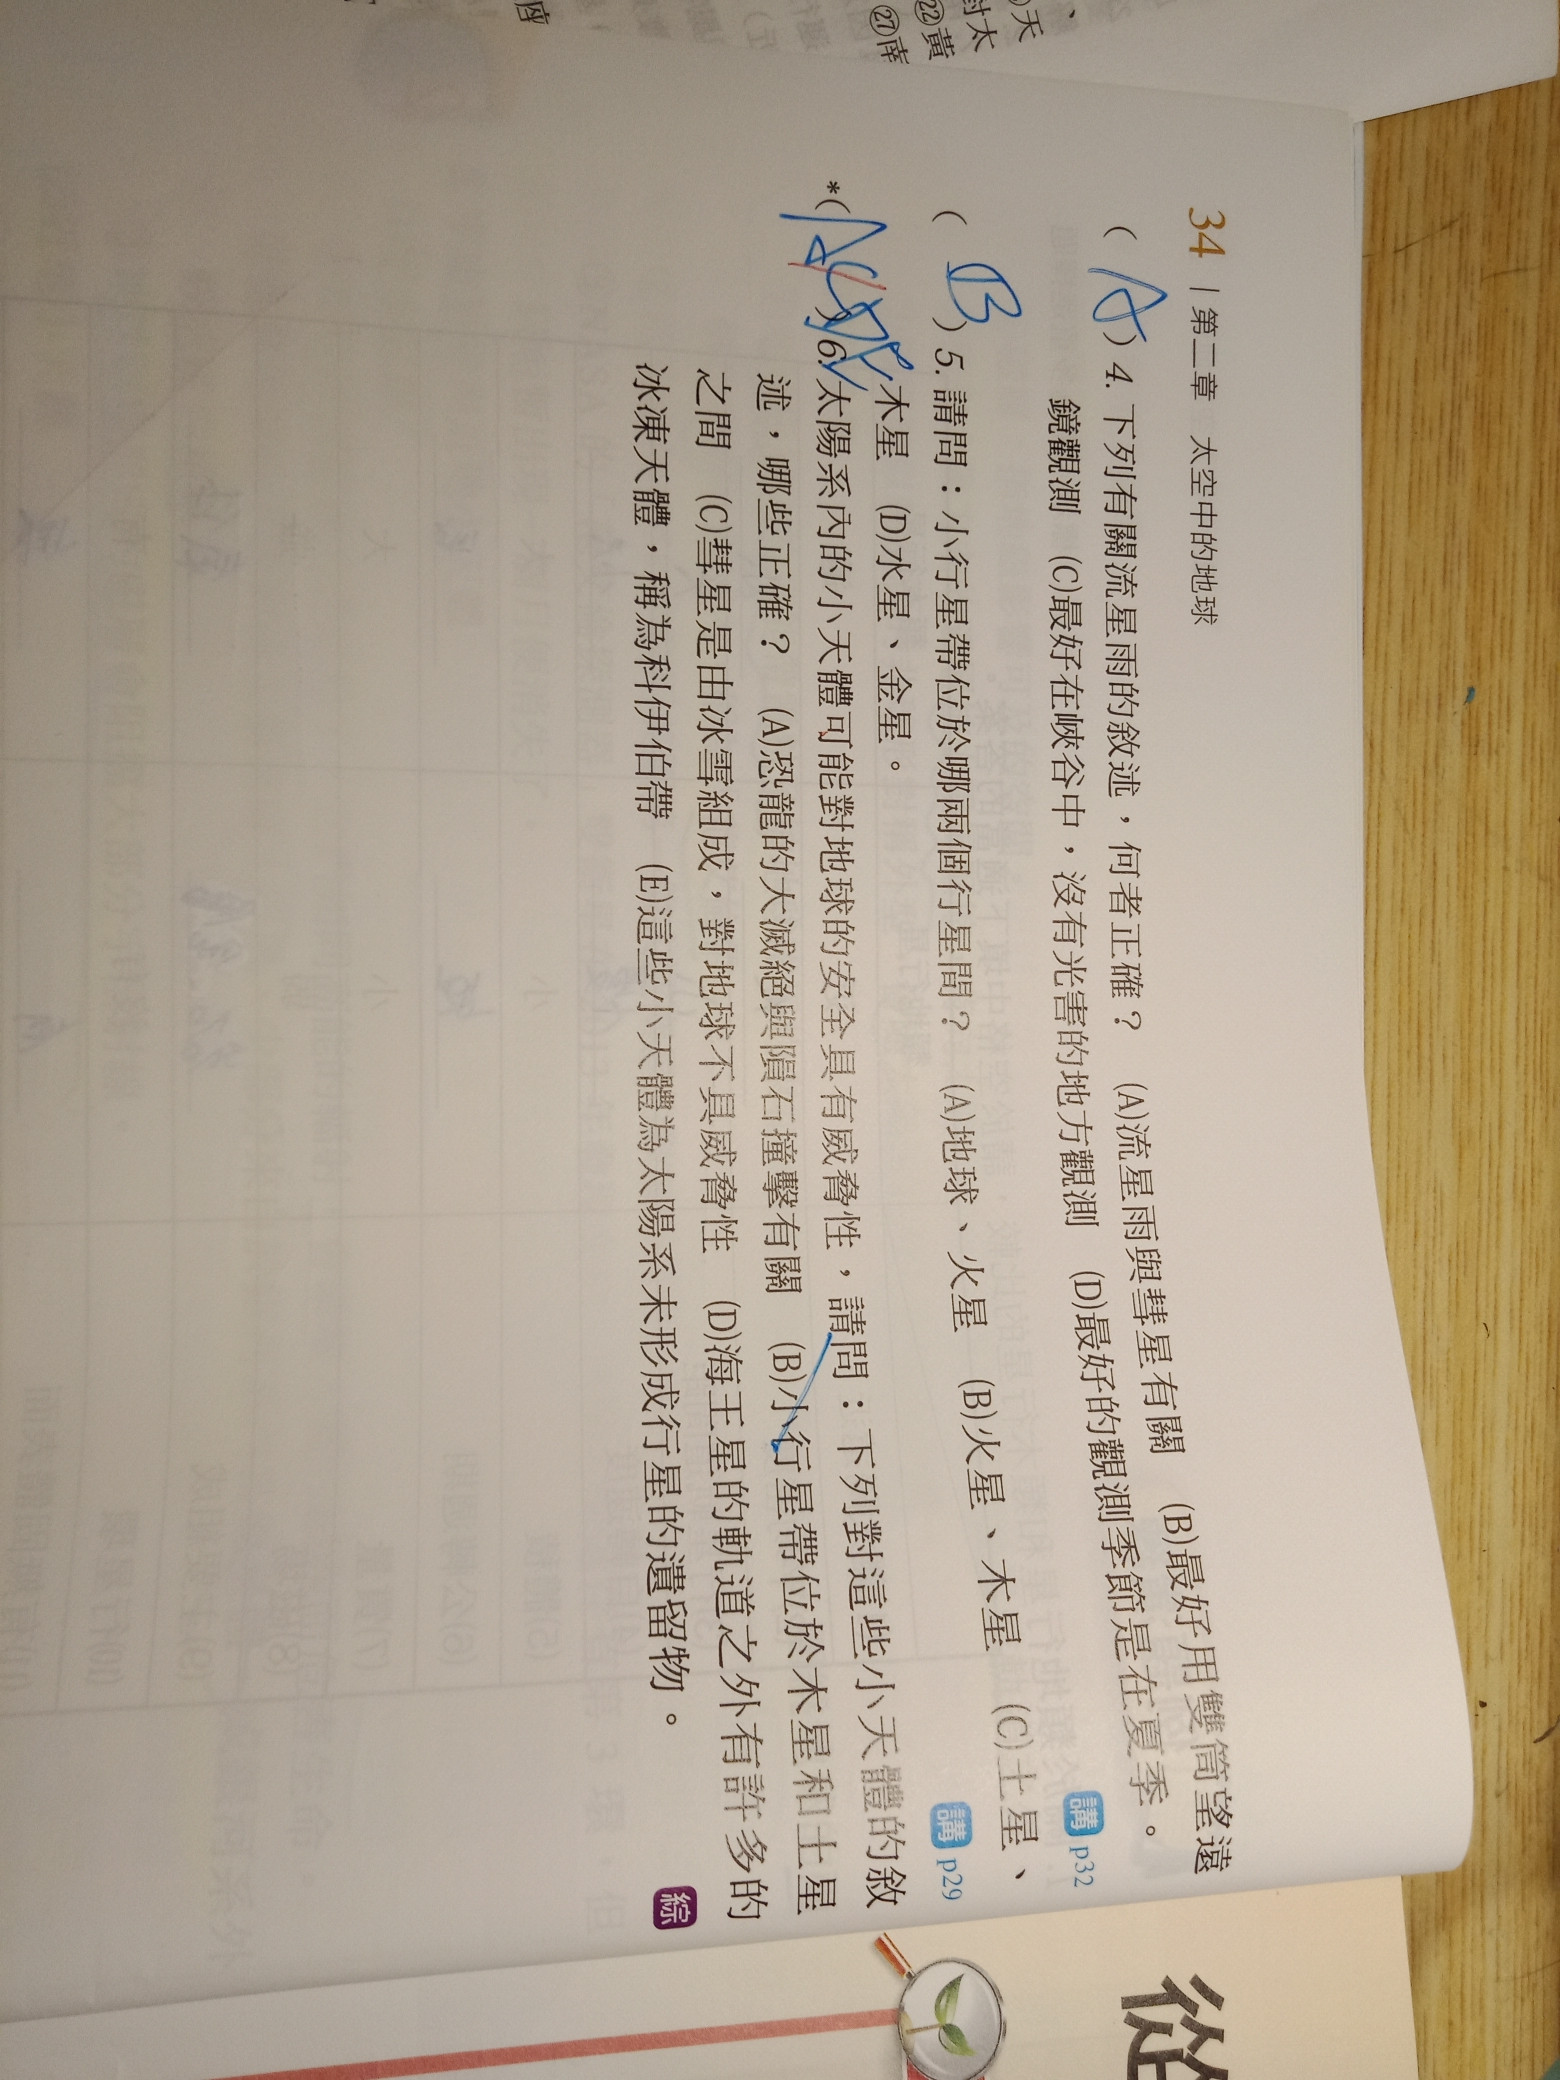 34｜第二章 太空中的地球
( A ) 4. 下列有關流星雨的敘述，何者正確？ (A)流星雨與彗星有關 (B)最好用雙筒望遠
鏡觀測 (C)最好在峽谷中，沒有光害的地方觀測 (D)最好的觀測季節是在夏季。
講 p32
( B ) 5. 請問：小行星帶位於哪兩個行星間？ (A)地球、火星 (B)火星、木星 (C)土星、
木星 (D)水星、金星。
講 p29
*( ACDE ) 6. 太陽系內的小天體可能對地球的安全具有威脅性，請問：下列對這些小天體的敘
述，哪些正確？ (A)恐龍的大滅絕與隕石撞擊有關 (B)小行星帶位於木星和土星
之間 (C)彗星是由冰雪組成，對地球不具威脅性 (D)海王星的軌道之外有許多的
冰凍天體，稱為科伊伯帶 (E)這些小天體為太陽系未形成行星的遺留物。
綜
、
天
討太
㉒黃
㉗南
座
從